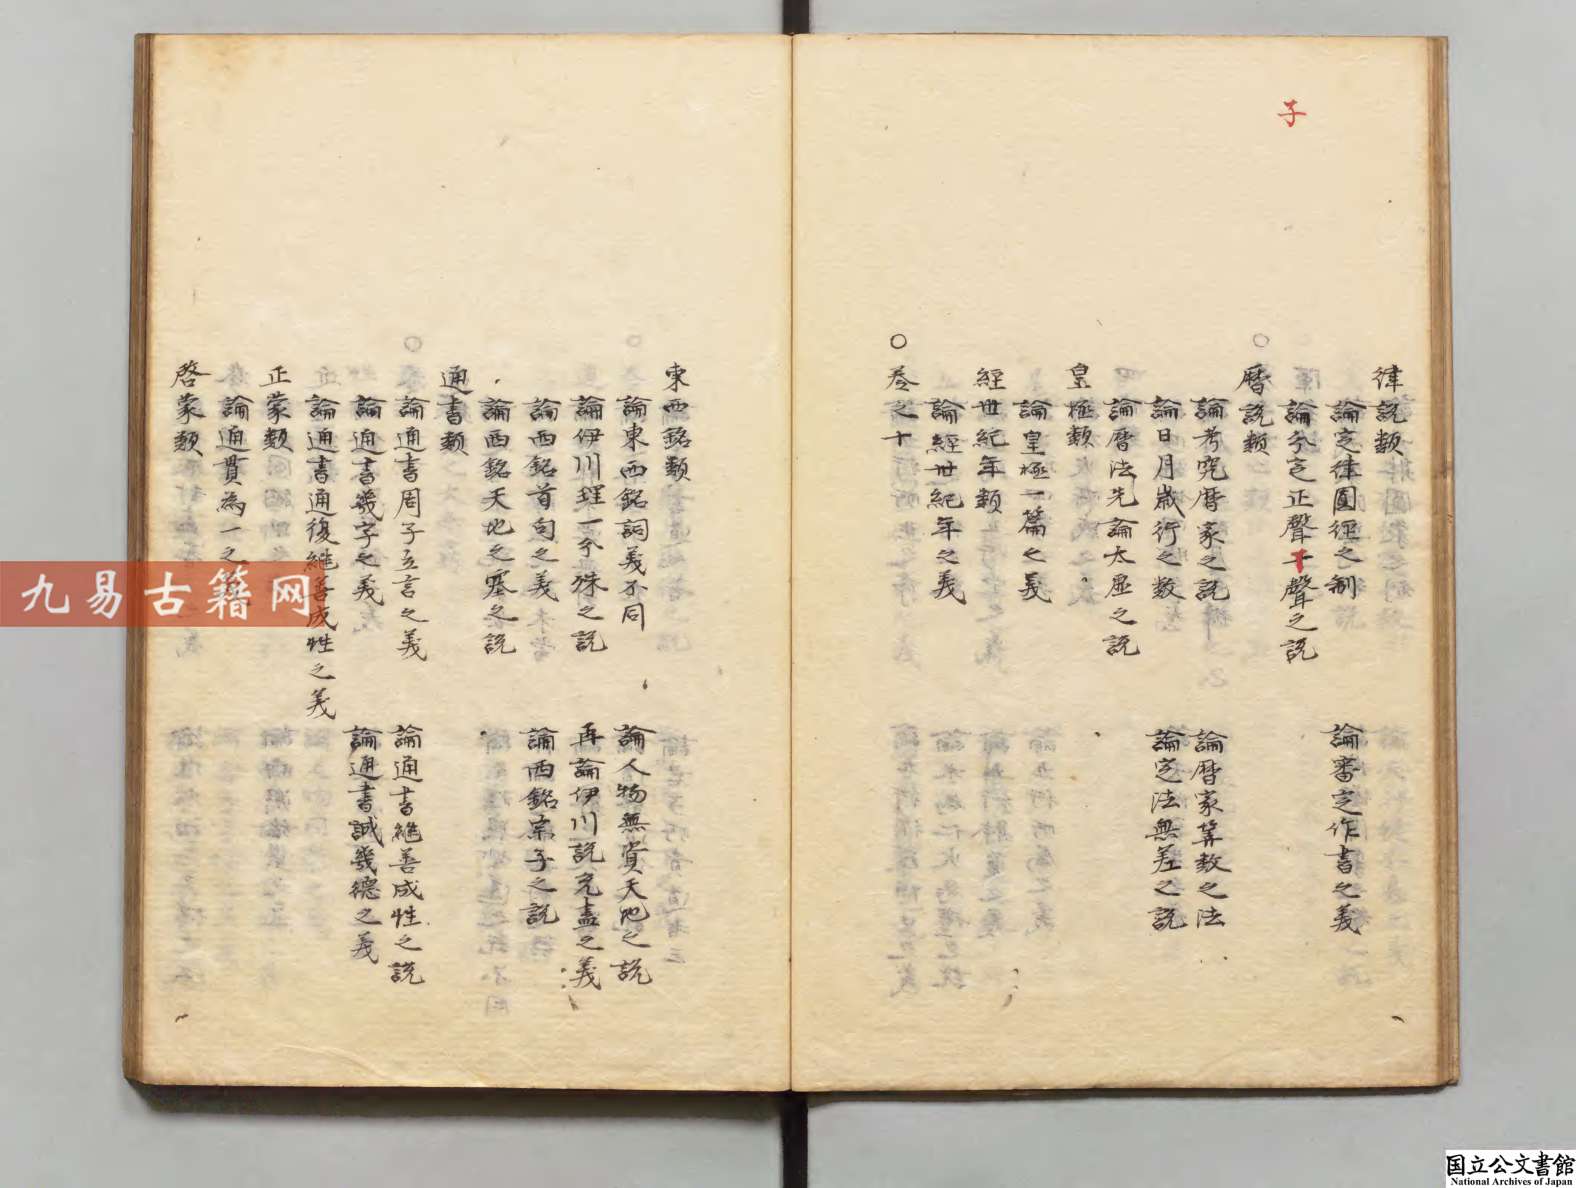 子
律說類
論定律圓徑之制
論審定作書之義
論分定正聲子聲之説
曆説類
論考究曆家之説
論曆家筭数之法
論日月歲行之数
論定法無差之説
論曆法先論太虛之説
皇極類
論皇極一篇之義
經世紀年類
論經世紀年之義
○巻之十
東西銘類
論東西銘詞義不同
論人物無資天地之説
論伊川理一分殊之説
再論伊川説充盡之義
論西銘首句之義
論西銘宗子之説
論西銘天地之塞之説
通書類
論通書周子立言之義
論通書継善成性之説
論通書幾字之義
論通書誠幾德之義
論通書通後継善成性之義
正蒙類
論通貫為一之
啓蒙類
九易古籍网
国立公文書館
National Archives of Japan